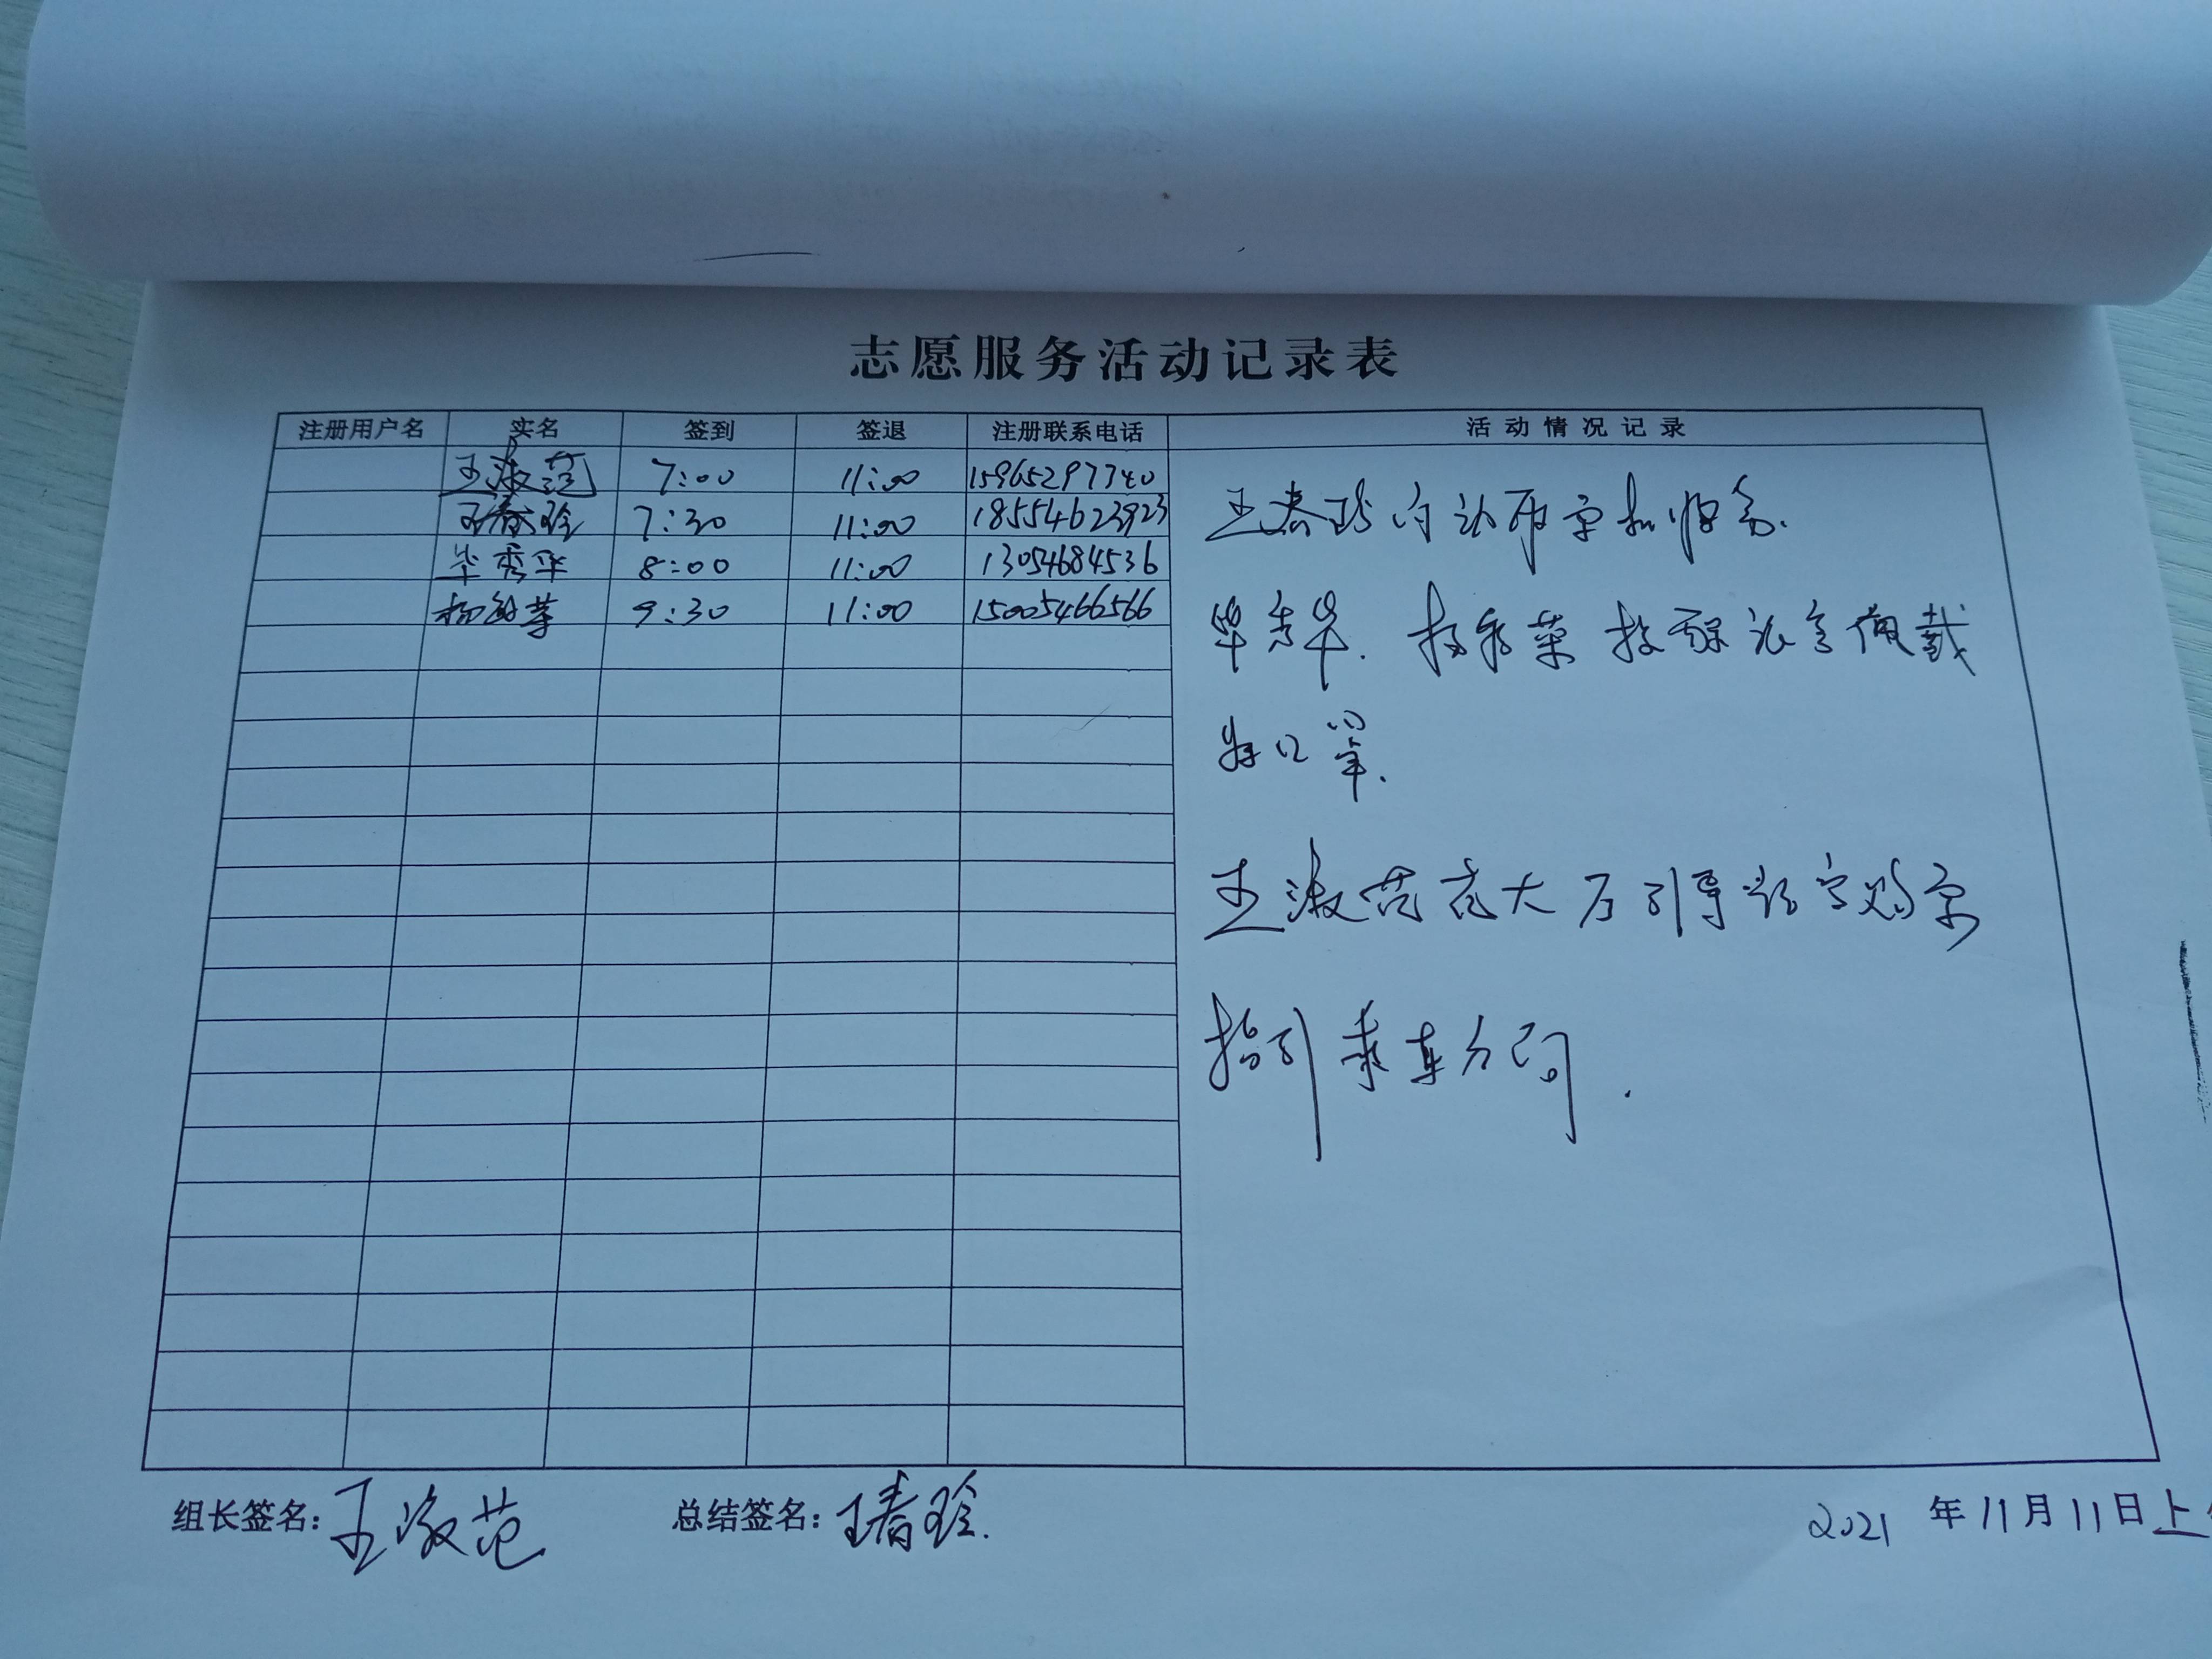 志愿服务活动记录表
注册用户名 实名 签到 签退 注册联系电话 活动情况记录
王淑范 7:00 11:00 15965297740
王春玲 7:30 11:00 18554623923
毕秀华 8:00 11:00 13054684536
杨 9:30 11:00 15005466566
王春玲
毕秀华. 提醒 佩戴
好口罩.
王淑范在大厅引导 购票
指引乘车方向.
组长签名: 王淑范 总结签名: 王春玲.
2021年11月11日上